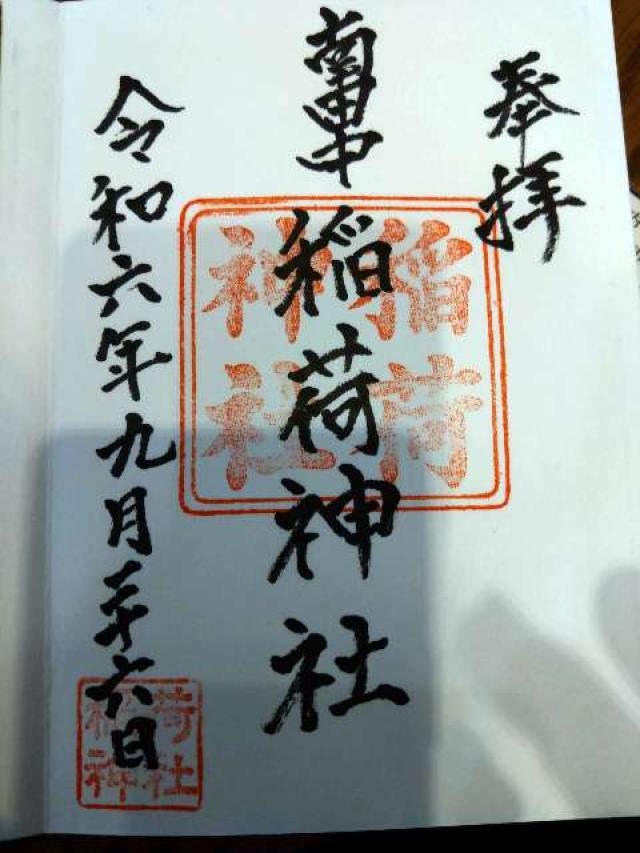 奉拝
南田中稲荷神社
稲荷
神社
令和六年九月二十六日
稲荷
神社